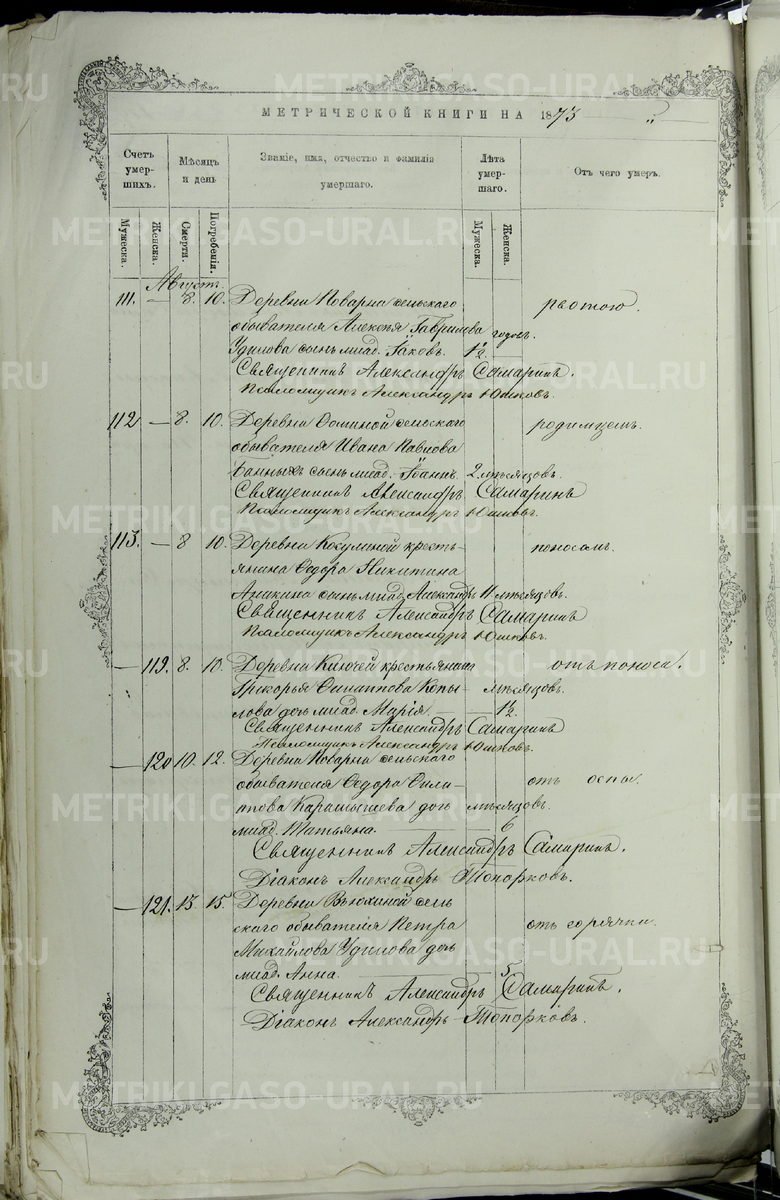 МЕТРИЧЕСКОЙ КНИГИ НА 1873
Счетъ умер-шихъ.
Мѣсяцъ и день
Званіе, имя, отчество и фамилія умершаго.
Лѣта умер-шаго.
Отъ чего умеръ.
Мужеска.
Женска.
Смерти.
Погребенія.
Мужеска.
Женска.
Августъ.
111. — 8. 10. Деревни Поварни сельскаго рвотою.
обывателя Алексѣя Гаврилова годос.
Удилова сынъ млад. Іаковъ. 1½
Священникъ Александръ Самаринъ.
Псаломщикъ Александръ Юшковъ.
112 — 8. 10. Деревни Фоминой сельскаго родимцемъ.
обывателя Ивана Павлова
Банныхъ сынъ млад. Іоаннъ. 2 мѣсяцовъ.
Священникъ Александръ Самаринъ
Псаломщикъ Александръ Юшковъ.
113. — 8 10. Деревни Косулиной кресть- поносомъ.
янина Ѳедора Никитина
Аникина сынъ млад. Александръ 11 мѣсяцовъ.
Священникъ Александръ Самаринъ
Псаломщикъ Александръ Юшковъ.
— 119. 8. 10. Деревни Ключей крестьянина отъ поноса.
Григорья Филиппова Копы- мѣсяцовъ.
лова дочь млад. Марія. — 1½.
Священникъ Александръ Самаринъ
Псаломщикъ Александръ Юшковъ.
— 120 10. 12. Деревни Поварни сельскаго
обывателя Ѳедора Фили- отъ оспы.
ппова Карамышева дочь мѣсяцовъ.
млад. Татьяна. — 6
Священникъ Александръ Самаринъ.
Діаконъ Александръ Топорковъ.
— 121. 13. 15. Деревни Вьюхиной сель-
скаго обывателя Петра отъ горячки.
Михайлова Удилова дочь
млад. Анна. — 5
Священникъ Александръ Самаринъ.
Діаконъ Александръ Топорковъ.
METRIKI.GASO-URAL.RU